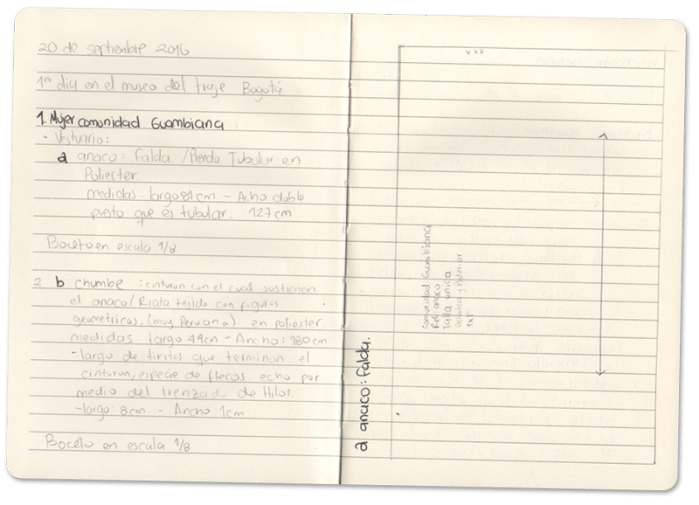 20 de septiembre 2016
1er dia en el museo del traje Bogotá
1 Mujer comunidad Guambiana
- Vestuario:
a anaco: Falda / Prenda Tubular en
Poliester.
medidas: largo 81cm - Acho doble
punto que es tubular. 127cm
Boceto en escala 1/8
2 b chumbe : cinturon con el cual sostienen
el anaco/ Riata tejida con figuras
geometricas, (muy Peruana) en poliester.
medidas largo 44cm - Ancho: 180cm
- largo de tiritas que terminan el
cinturon, especie de flecos echo por
medio del trenzado de Hilos.
- largo: 8cm - Ancho 1cm
Boceto en escala 1/8
xxx
Comunidad Guambiana
Ref: anaco
talla unica
Delantero y Posterior
1x1
a anaco: Falda.